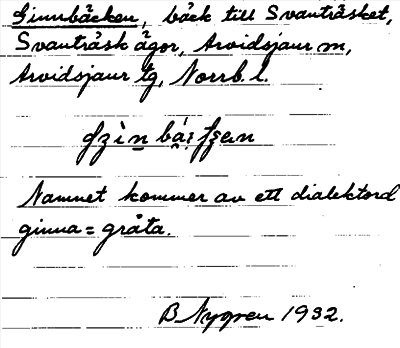 Ginnbäcken, bäck till Svanträsket,
Svanträsk ägor, Arvidsjaur sn,
Arvidsjaur tg, Norrb. l.
Namnet kommer av ett dialektord
ginna = gråta.
B Nygren 1932.